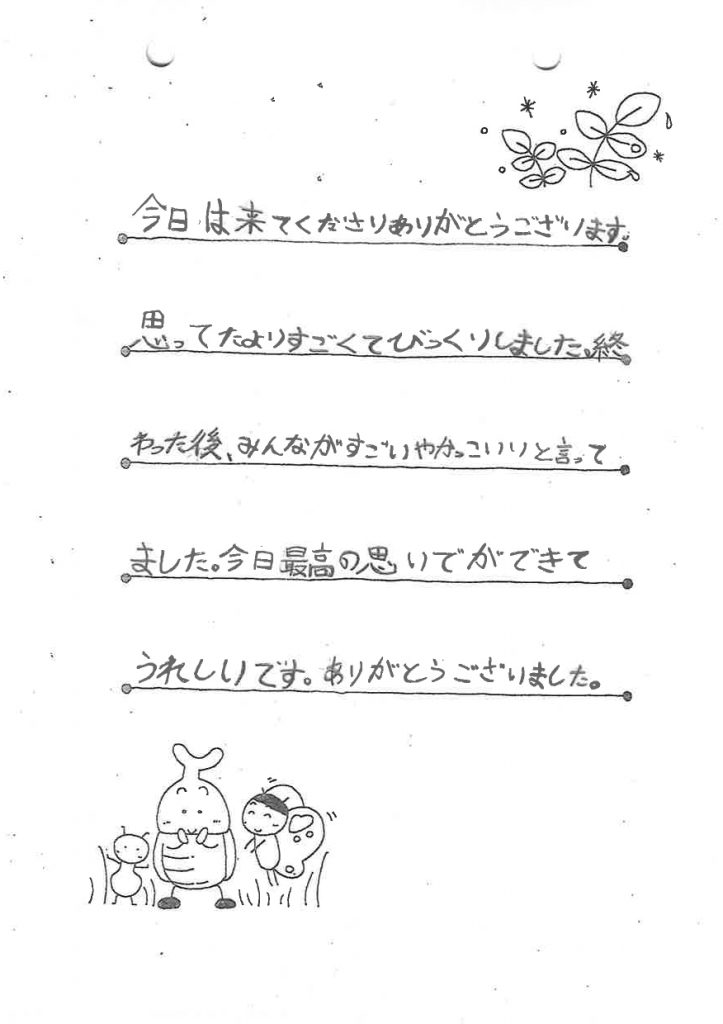 今日は来てくださりありがとうございます。
思ってたよりすごくてびっくりしました。終
わった後、みんながすごいやかっこいいと言って
ました。今日最高の思いでができて
うれしいです。ありがとうございました。